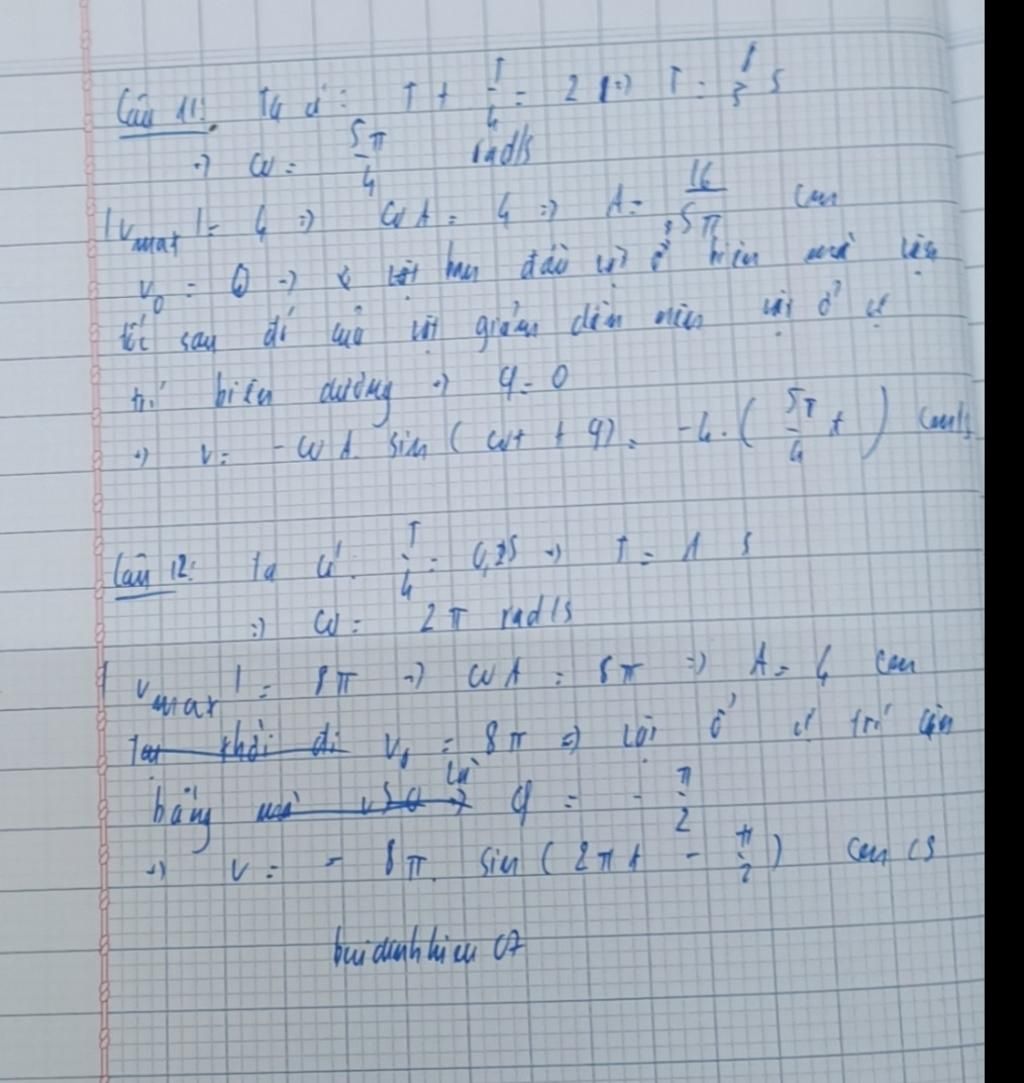 Câu 11: Ta có: T + T/4 = 2 => T = 8/5 s
=> ω = 5π/4 rad/s
|vmax| = 4 => ωA = 4 => A = 16/5π cm
v0 = 0 => vật ban đầu vật ở biên mà vận
tốc sau đó của vật giảm dần nên vật ở vị
trí biên dương => φ = 0
=> v = -ωA sin(ωt + φ) = -4.(5π/4 t) cm/s
Câu 12: Ta có: T/4 = 0,25 => T = 1 s
=> ω = 2π rad/s
|vmax| = 8π => ωA = 8π => A = 4 cm
v0 = 8π => vật ở vị trí cân
bằng là φ = -π/2
=> v = -8π. sin(2πt - π/2) cm/s
buidinhhieu c7